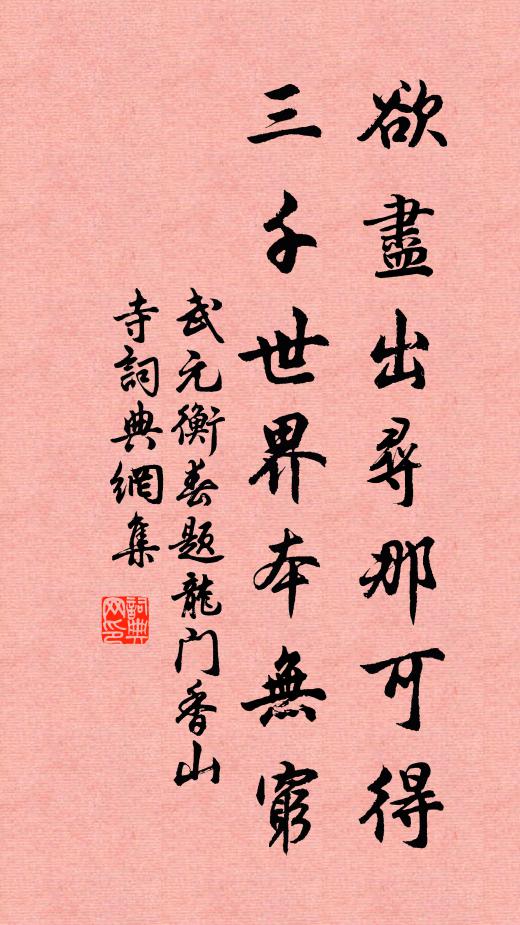 欲盡出尋那可得
三千世界本無窮
武元衡春题龍门香山
寺詞典網集
詞典
网印